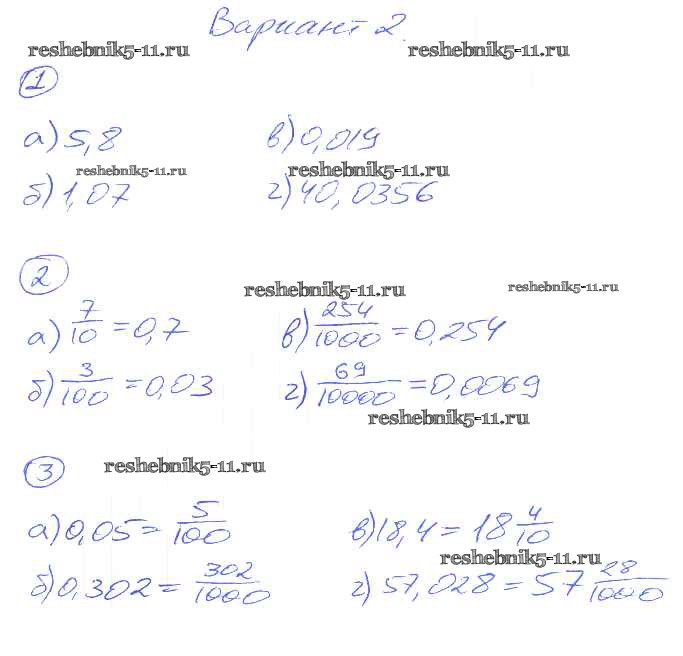 Вариант 2.
reshebnik5-11.ru reshebnik5-11.ru
1
а) 5,8 в) 0,019
reshebnik5-11.ru reshebnik5-11.ru
б) 1,07 г) 40,0356
2
reshebnik5-11.ru reshebnik5-11.ru
а) 7/10 = 0,7 в) 254/1000 = 0,254
б) 3/100 = 0,03 г) 69/10000 = 0,0069
reshebnik5-11.ru
3 reshebnik5-11.ru
а) 0,05 = 5/100 в) 18,4 = 18 4/10
reshebnik5-11.ru
б) 0,302 = 302/1000 г) 57,028 = 57 28/1000